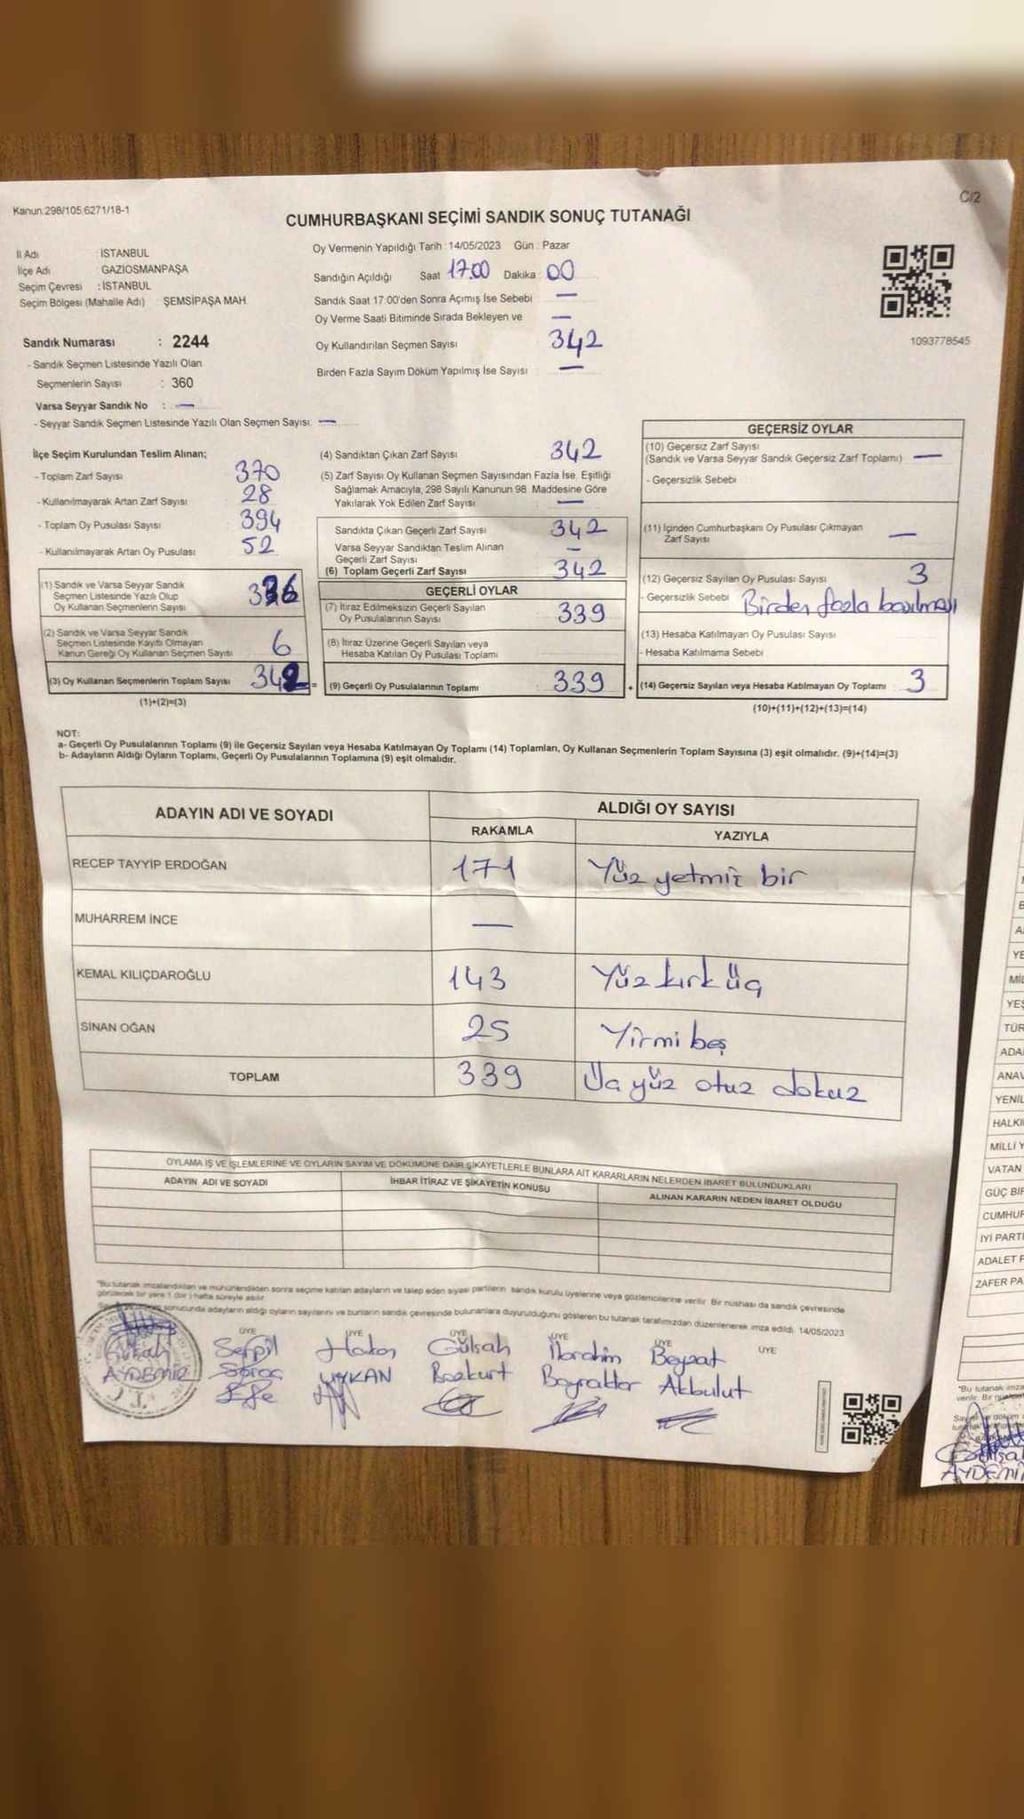 Kanun:298/105,6271/18-1
C/2
CUMHURBAŞKANI SEÇİMİ SANDIK SONUÇ TUTANAĞI
İl Adı : İSTANBUL
İlçe Adı : GAZİOSMANPAŞA
Seçim Çevresi : İSTANBUL
Seçim Bölgesi (Mahalle Adı) : ŞEMSİPAŞA MAH.
Sandık Numarası : 2244
- Sandık Seçmen Listesinde Yazılı Olan
Seçmenlerin Sayısı : 360
Varsa Seyyar Sandık No : —
- Seyyar Sandık Seçmen Listesinde Yazılı Olan Seçmen Sayısı: —
Oy Vermenin Yapıldığı Tarih : 14/05/2023 Gün : Pazar
Sandığın Açıldığı Saat 17.00 Dakika : 00
Sandık Saat 17:00'den Sonra Açılmış İse Sebebi —
Oy Verme Saati Bitiminde Sırada Bekleyen ve —
Oy Kullandırılan Seçmen Sayısı 342
Birden Fazla Sayım Döküm Yapılmış İse Sayısı —
1093778545
İlçe Seçim Kurulundan Teslim Alınan;
- Toplam Zarf Sayısı 370
- Kullanılmayarak Artan Zarf Sayısı 28
- Toplam Oy Pusulası Sayısı 394
- Kullanılmayarak Artan Oy Pusulası 52
(1) Sandık ve Varsa Seyyar Sandık
Seçmen Listesinde Yazılı Olup
Oy Kullanan Seçmenlerin Sayısı 336
(2) Sandık ve Varsa Seyyar Sandık
Seçmen Listesinde Kayıtlı Olmayan
Kanun Gereği Oy Kullanan Seçmen Sayısı 6
(3) Oy Kullanan Seçmenlerin Toplam Sayısı 342
(1)+(2)=(3)
(4) Sandıktan Çıkan Zarf Sayısı 342
(5) Zarf Sayısı Oy Kullanan Seçmen Sayısından Fazla İse, Eşitliği
Sağlamak Amacıyla, 298 Sayılı Kanunun 98. Maddesine Göre
Yakılarak Yok Edilen Zarf Sayısı —
Sandıkta Çıkan Geçerli Zarf Sayısı 342
Varsa Seyyar Sandıktan Teslim Alınan
Geçerli Zarf Sayısı —
(6) Toplam Geçerli Zarf Sayısı 342
GEÇERLİ OYLAR
(7) İtiraz Edilmeksizin Geçerli Sayılan
Oy Pusulalarının Sayısı 339
(8) İtiraz Üzerine Geçerli Sayılan veya
Hesaba Katılan Oy Pusulası Toplamı
(9) Geçerli Oy Pusulalarının Toplamı 339
GEÇERSİZ OYLAR
(10) Geçersiz Zarf Sayısı
(Sandık ve Varsa Seyyar Sandık Geçersiz Zarf Toplamı) —
- Geçersizlik Sebebi
(11) İçinden Cumhurbaşkanı Oy Pusulası Çıkmayan
Zarf Sayısı —
(12) Geçersiz Sayılan Oy Pusulası Sayısı 3
- Geçersizlik Sebebi Birden fazla basılması
(13) Hesaba Katılmayan Oy Pusulası Sayısı
- Hesaba Katılmama Sebebi
(14) Geçersiz Sayılan veya Hesaba Katılmayan Oy Toplamı 3
(10)+(11)+(12)+(13)=(14)
NOT:
a- Geçerli Oy Pusulalarının Toplamı (9) ile Geçersiz Sayılan veya Hesaba Katılmayan Oy Toplamı (14) Toplamları, Oy Kullanan Seçmenlerin Toplam Sayısına (3) eşit olmalıdır. (9)+(14)=(3)
b- Adayların Aldığı Oyların Toplamı, Geçerli Oy Pusulalarının Toplamına (9) eşit olmalıdır.
ADAYIN ADI VE SOYADI ALDIĞI OY SAYISI
RAKAMLA YAZIYLA
RECEP TAYYİP ERDOĞAN 171 Yüz yetmiş bir
MUHARREM İNCE —
KEMAL KILIÇDAROĞLU 143 Yüz kırk üç
SİNAN OĞAN 25 Yirmi beş
TOPLAM 339 Üç yüz otuz dokuz
OYLAMA İŞ VE İŞLEMLERİNE VE OYLARIN SAYIM VE DÖKÜMÜNE DAİR ŞİKAYETLERLE BUNLARA AİT KARARLARIN NELERDEN İBARET BULUNDUKLARI
ADAYIN ADI VE SOYADI İHBAR İTİRAZ VE ŞİKAYETİN KONUSU ALINAN KARARIN NEDEN İBARET OLDUĞU
"Bu tutanak imzalandıktan ve mühürlendikten sonra seçime katılan adayların ve talep eden siyasi partilerin sandık kurulu üyelerine veya gözlemcilerine verilir. Bir nüshası da sandık çevresinde
görülecek bir yere 1 (bir) hafta süreyle asılır.
sonucunda adayların aldığı oyların sayılarını ve bunların sandık çevresinde bulunanlara duyurulduğunu gösteren bu tutanak tarafımızdan düzenlenerek imza edildi. 14/05/2023
ÜYE ÜYE ÜYE ÜYE ÜYE ÜYE
Serpil Hakan Gülşah İbrahim Beyzat
AYDEMİR Bozkurt Bayraktar Akbulut
YE
MİL
YEŞ
TÜR
ADA
ANAV
YENİL
HALKI
MİLLİ Y
VATAN
GÜÇ BİR
CUMHUR
İYİ PARTİ
ADALET
ZAFER PA
"Bu tutanak imza
verilir. Bir
AYDEMİ